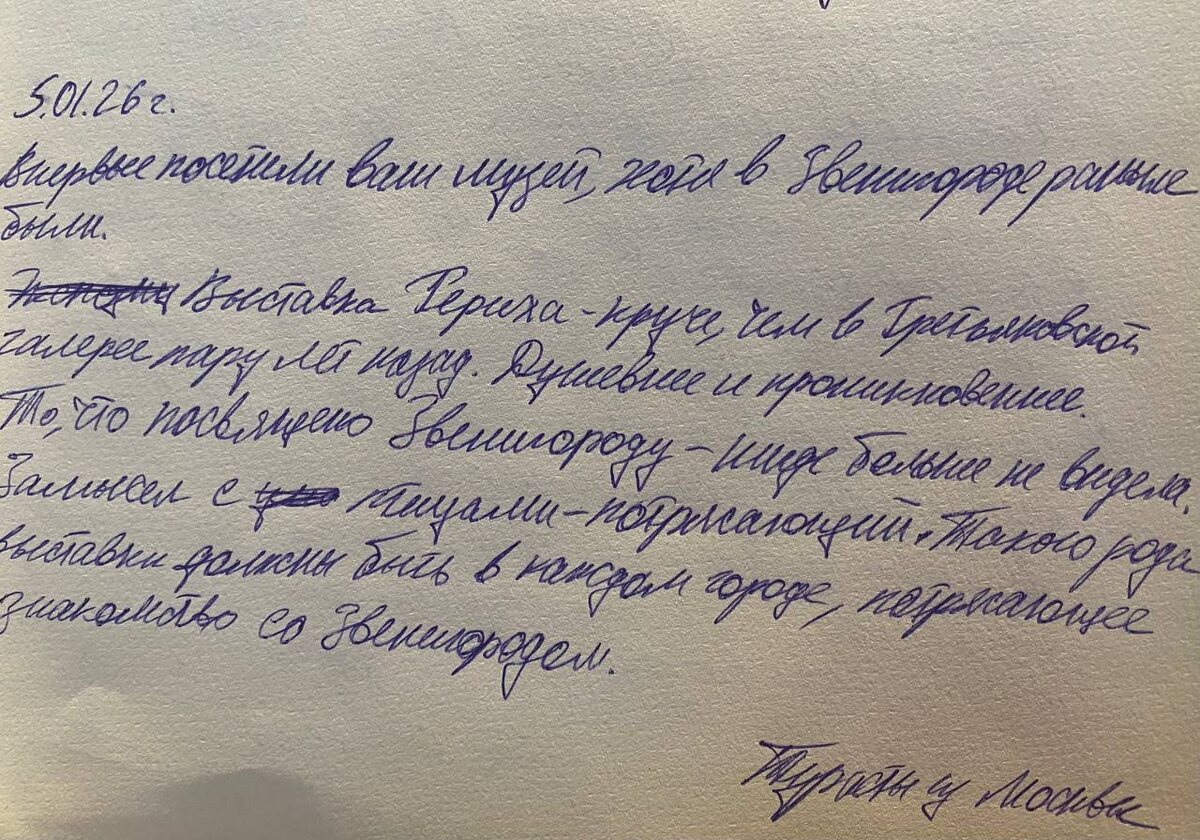 5.01.26 г.
Впервые посетили ваш музей, хотя в Звенигороде раньше
были.
Выставка Рериха - круче, чем в Третьяковской
галерее пару лет назад. Душевнее и проникновеннее.
То, что посвящено Звенигороду - нигде больше не видела.
Замысел с птицами - потрясающий. Такого рода
выставки должны быть в каждом городе, потрясающее
знакомство со Звенигородом.
Туристы из Москвы